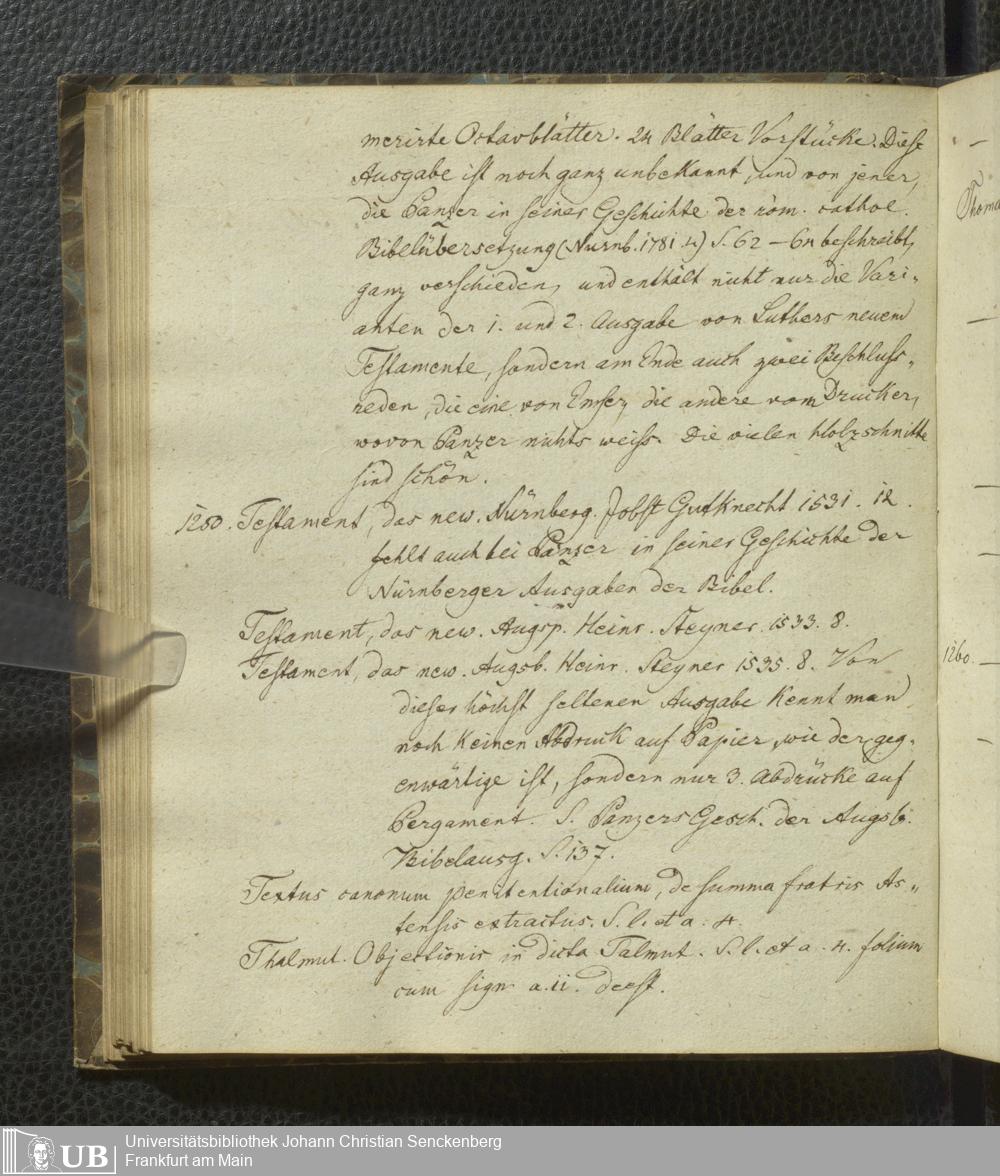 merirte Octavblätter. 24 Blätter Vorstücke. Diese
Ausgabe ist noch ganz unbekannt, und von jener,
die Panzer in seiner Geschichte der röm. cathol.
Bibelübersetzung (Nürnb. 1781. 4) S. 62 – 64 beschreibt,
ganz verschieden, und enthält nicht nur die Vari-
anten der 1. und 2. Ausgabe von Luthers neuem
Testamente, sondern am Ende auch zwei Beschluss-
reden, die eine von Emser, die andere vom Drucker,
wovon Panzer nichts weiss. Die vielen Holzschnitte
sind schön.
1250. Testament, das new. Nürnberg. Jobst Gutknecht 1531. 12
fehlt auch bei Panzer in seiner Geschichte der
Nürnberger Ausgaben der Bibel.
Testament, das new. Augsp. Heinr. Steyner. 1533. 8.
Testament, das new. Augsb. Heinr. Steyner 1535. 8. Von
dieser höchst seltenen Ausgabe kennt man
noch keinen Abdruck auf Papier, wie der geg-
enwärtige ist, sondern nur 3. Abdrücke auf
Pergament. S. Panzers Gesch. der Augsb.
Bibelausg. S. 137.
Textus canonum penitentionalium, de summa fratris As-
tensis extractus. S. l. et a. 4.
Thalmut. Objectionis in dicta Talmut. S. l. et a. 4. folium
cum sign a.ii. deest.
Thoma
1260.
UB
Universitätsbibliothek Johann Christian Senckenberg
Frankfurt am Main